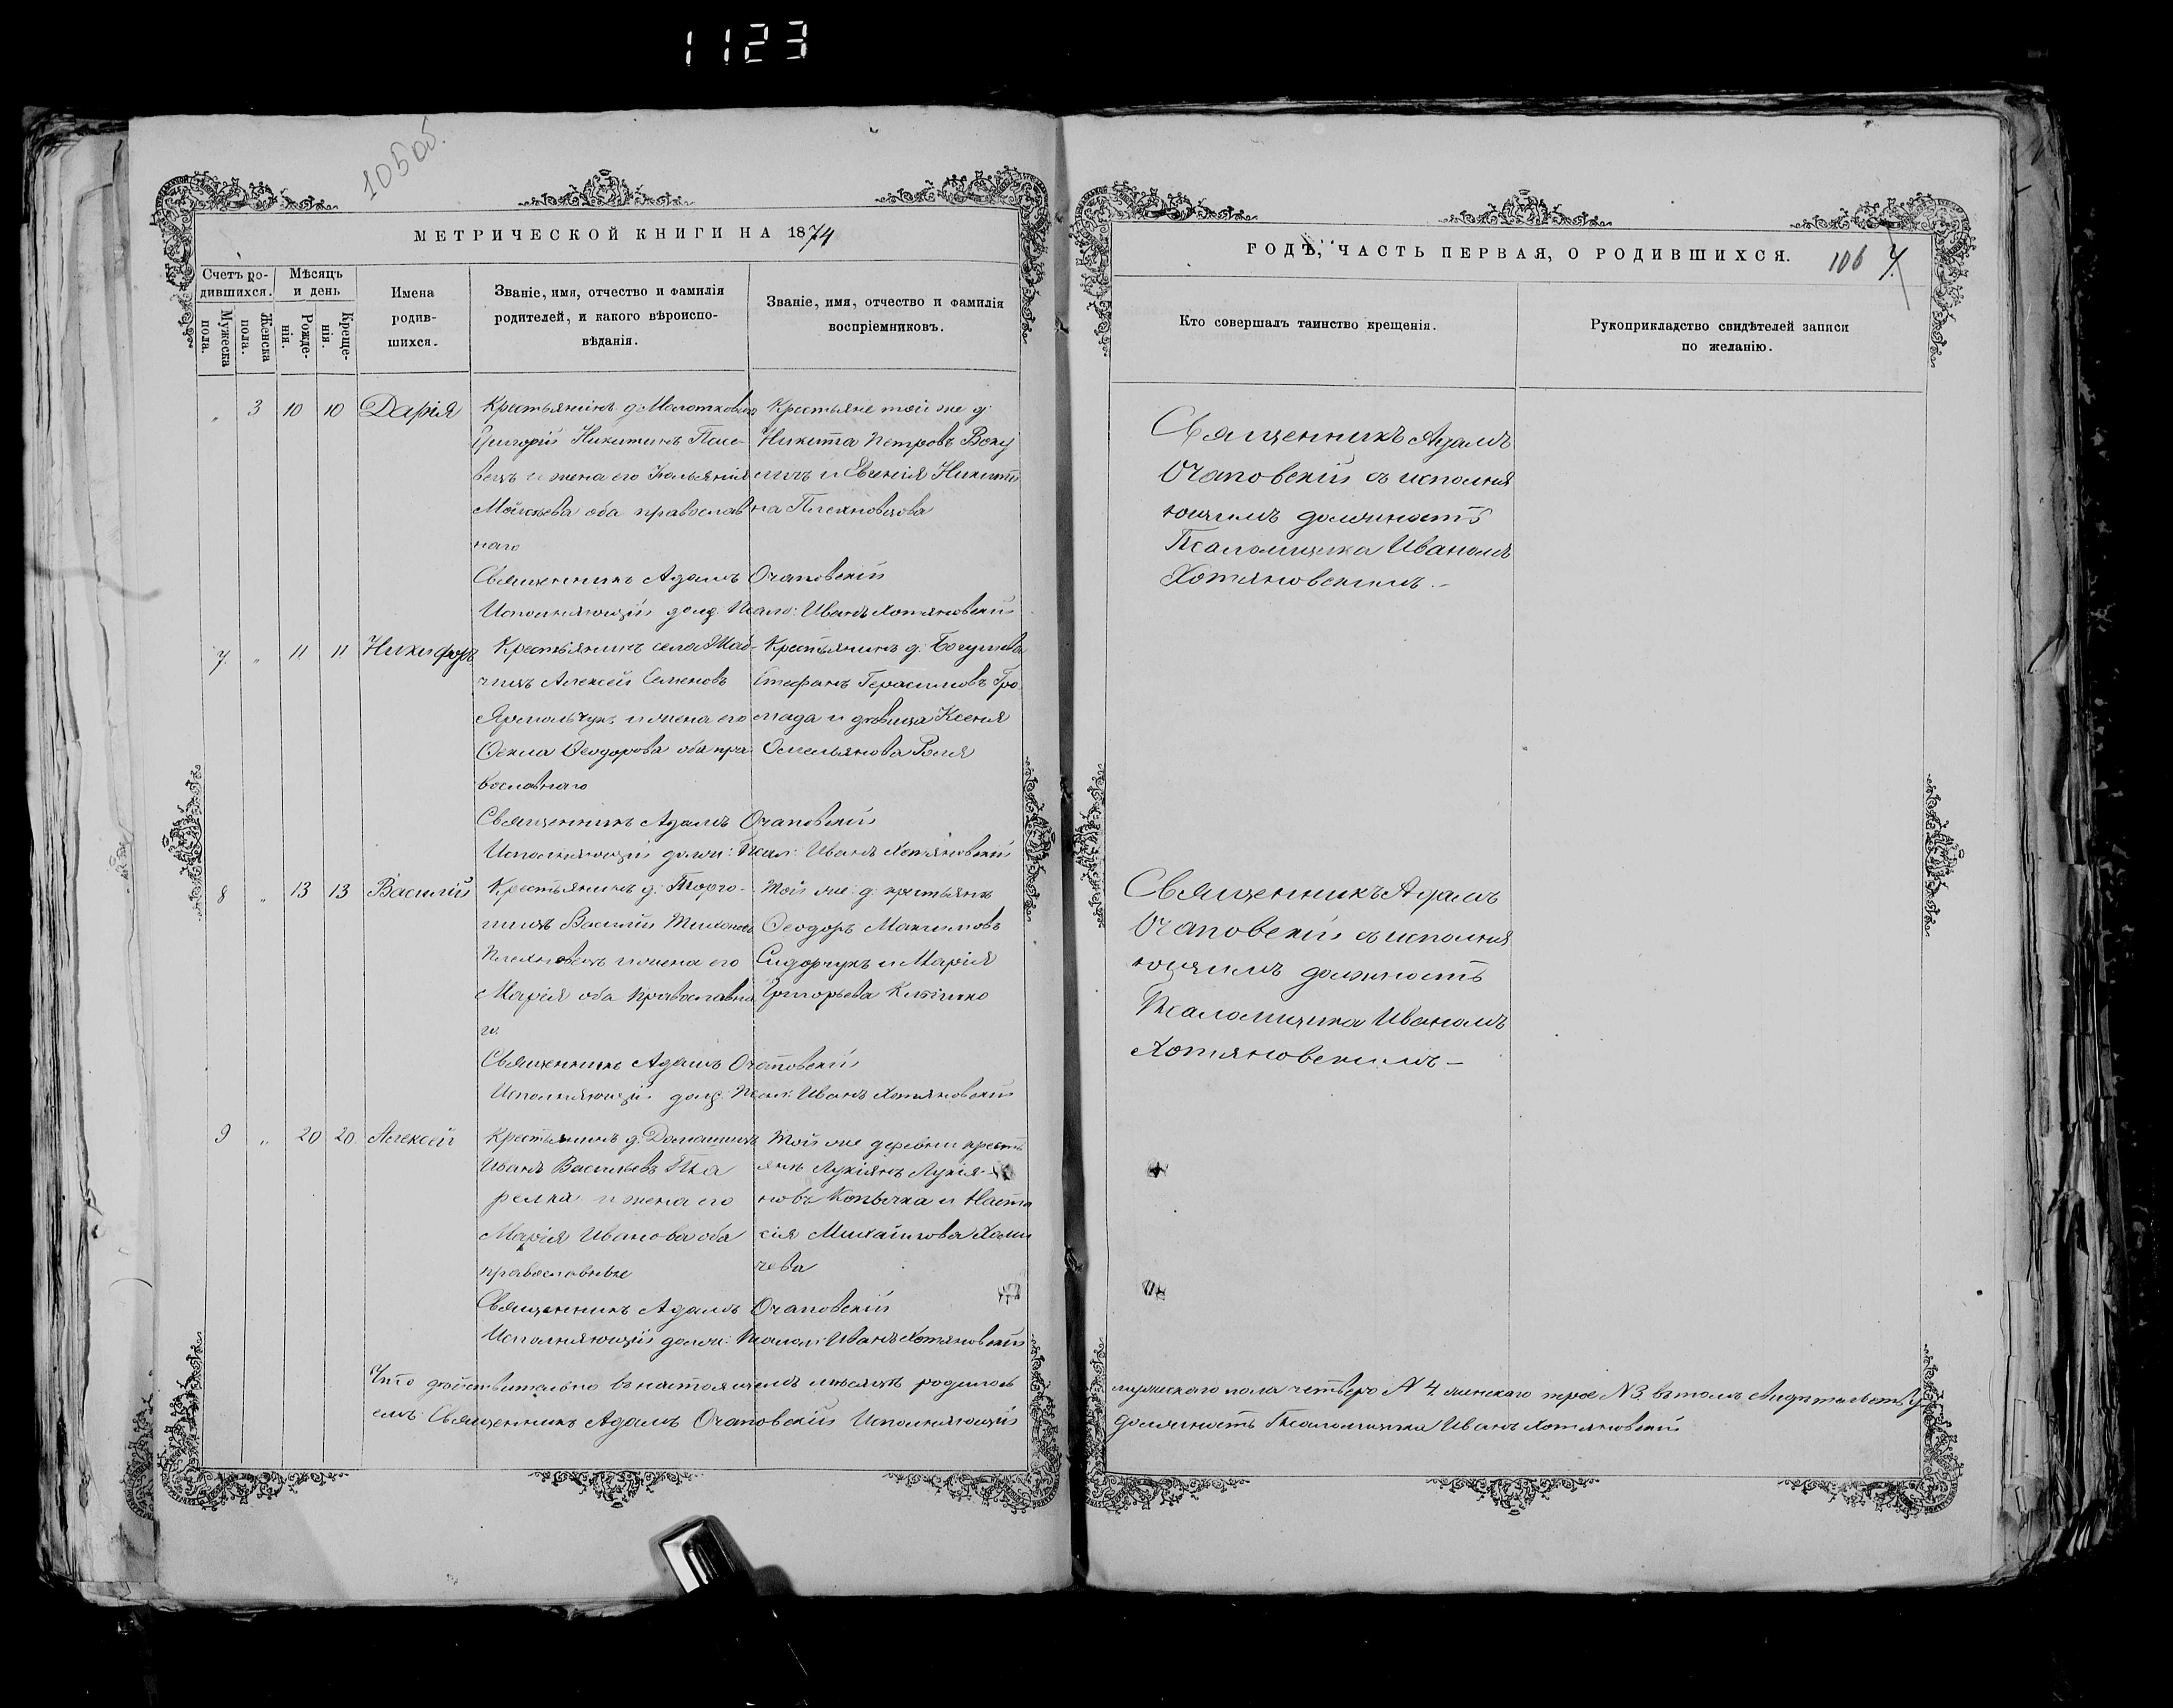 1123
105об.
МЕТРИЧЕСКОЙ КНИГИ НА 1874
Счетъ ро-
дившихся.
Мѣсяцъ
и день
Мужеска
пола.
Женска
пола.
Рожде-
нія.
Креще-
нія.
Имена
родив-
шихся.
Званіе, имя, отчество и фамилія
родителей, и какого вѣроиспо-
вѣданія.
Званіе, имя, отчество и фамилія
воспріемниковъ.
„ 3 10 10 Дарія
Крестьянинъ д:
Григорій Никитинъ
и жена его
Моисѣева оба православ
наго
Крестьяне той же д:
Никита Петровъ
и Евгенія Никити
на
Священникъ Адамъ Очаповскій
Исполняющій долж: Псало: Иванъ Хотяновскій
7. „ 11 11 Никифоръ
Крестьянинъ села
Алексей Семеновъ
Ярмольчукъ и жена его
Ѳекла Ѳеодорова оба пра
вославнаго
Крестьянинъ д:
Стефанъ Герасимовъ Гро
мада и дѣвица Ксенія
Омельянова
Священникъ Адамъ Очаповскій
Исполняющій долж: Псал: Иванъ Хотяновскій
8 „ 13 13 Василій
Крестьянинъ д:
Василій Тихоновъ
и жена его
Марія оба православна
го
Той же д: крестьянъ
Ѳеодоръ Максимовъ
Сидорчукъ и Марія
Григорьева
Священникъ Адамъ Очаповскій
Исполняющій долж: Псал: Иванъ Хотяновскій
9 „ 20 20 Алексей
Крестьянинъ д:
Иванъ Васильевъ
и жена его
Марія Иванова оба
православные
Той же деревни кресть
янъ Лукіянъ Лукія
новъ Копычка и Наста
сія Михайлова
Священникъ Адамъ Очаповскій
Исполняющій долж: Псалом: Иванъ Хотяновскій
Что дѣйствительно въ настоящемъ мѣсяцѣ родилось
емъ Священникъ Адамъ Очаповскій Исполняющій
ГОДЪ, ЧАСТЬ ПЕРВАЯ, О РОДИВШИХСЯ.
106 7.
Кто совершалъ таинство крещенія.
Рукоприкладство свидѣтелей записи
по желанію.
Священникъ Адамъ
Очаповскій съ исполня
ющимъ должность
Псаломщика Иваномъ
Хотяновскимъ.–
Священникъ Адамъ
Очаповскій съ исполня
ющимъ должность
Псаломщика Иваномъ
Хотяновскимъ–
мужескаго пола четверо N 4. женскаго трое N 3 въ томъ свидѣтельству
должность Псаломщика Иванъ Хотяновскій